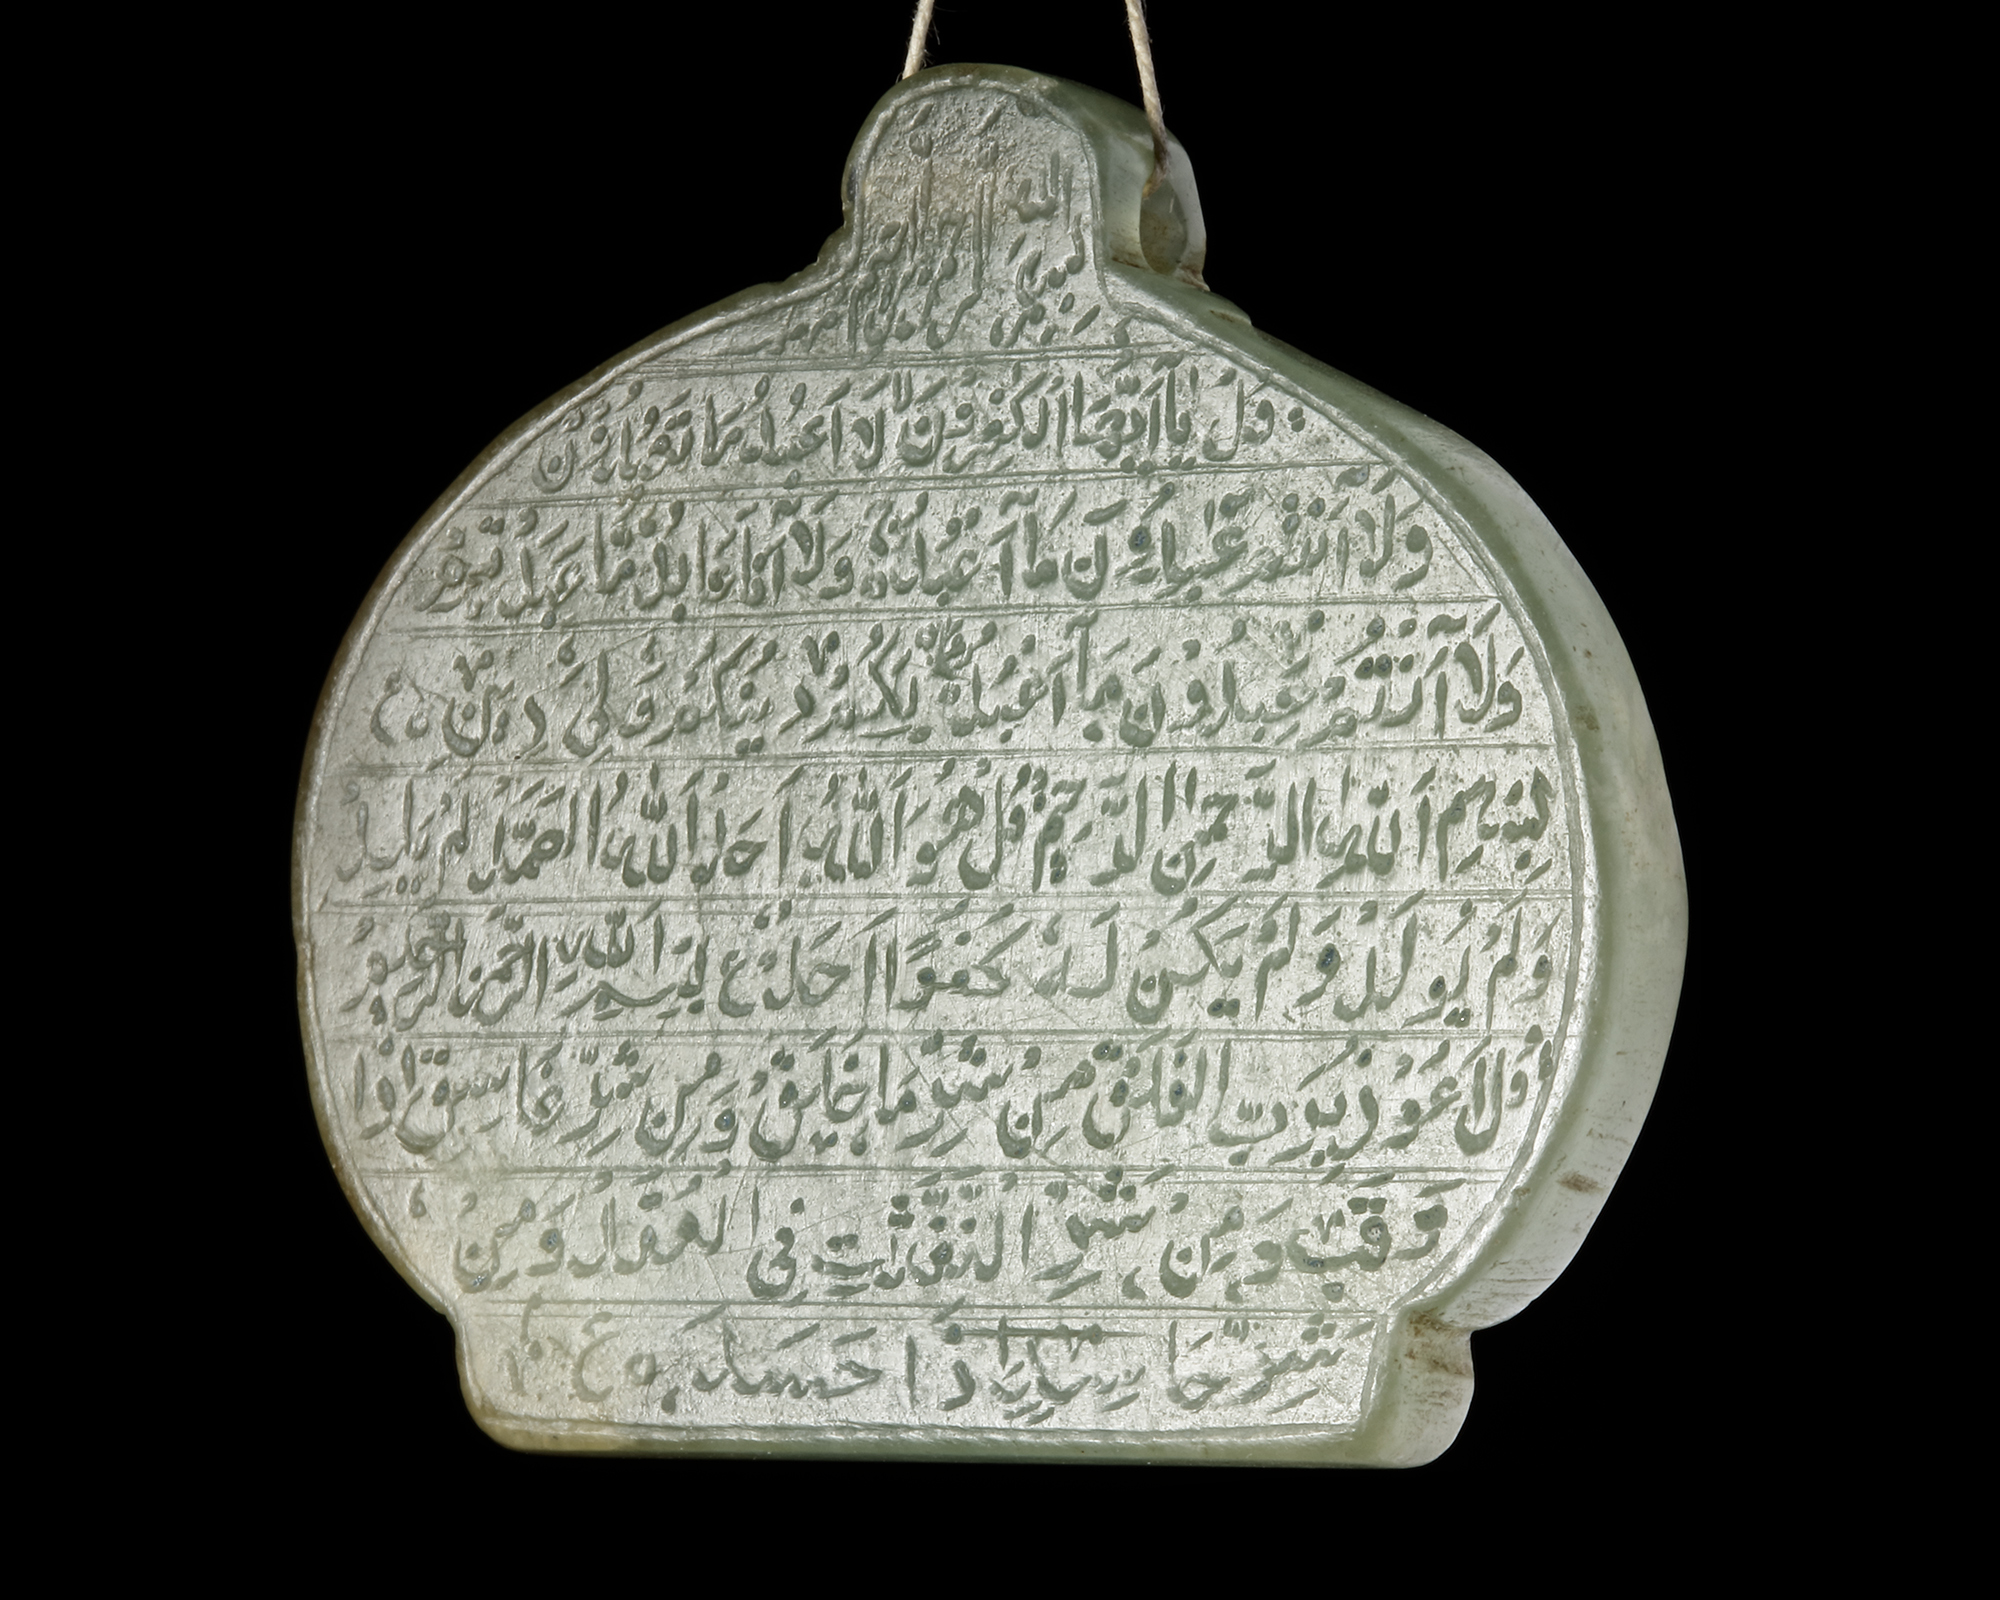 بسم الله الرحمن الرحيم
قُلْ يَا أَيُّهَا الْكٰفِرُونَ لَا أَعْبُدُ مَا تَعْبُدُونَ
وَلَا أَنْتُمْ عٰبِدُونَ مَا أَعْبُدُ وَلَا أَنَا عَابِدٌ مَا عَبَدْتُمْ
وَلَا أَنْتُمْ عٰبِدُونَ مَا أَعْبُدُ لَكُمْ دِينُكُمْ وَلِيَ دِينِ ع
بِسْمِ اللهِ الرَّحْمٰنِ الرَّحِيمِ قُلْ هُوَ اللهُ أَحَدٌ اللهُ الصَّمَدُ لَمْ يَلِدْ
وَلَمْ يُولَدْ وَلَمْ يَكُنْ لَهُ كُفُوًا أَحَدٌ ع بِسْمِ اللهِ الرَّحْمٰنِ الرَّحِيمِ
قُلْ أَعُوذُ بِرَبِّ الفَلَقِ مِنْ شَرِّ مَا خَلَقَ وَمِنْ شَرِّ غَاسِقٍ إِذَا
وَقَبَ وَمِنْ شَرِّ النَّفّٰثٰتِ فِي الْعُقَدِ وَمِنْ
شَرِّ حَاسِدٍ إِذَا حَسَدَ ع